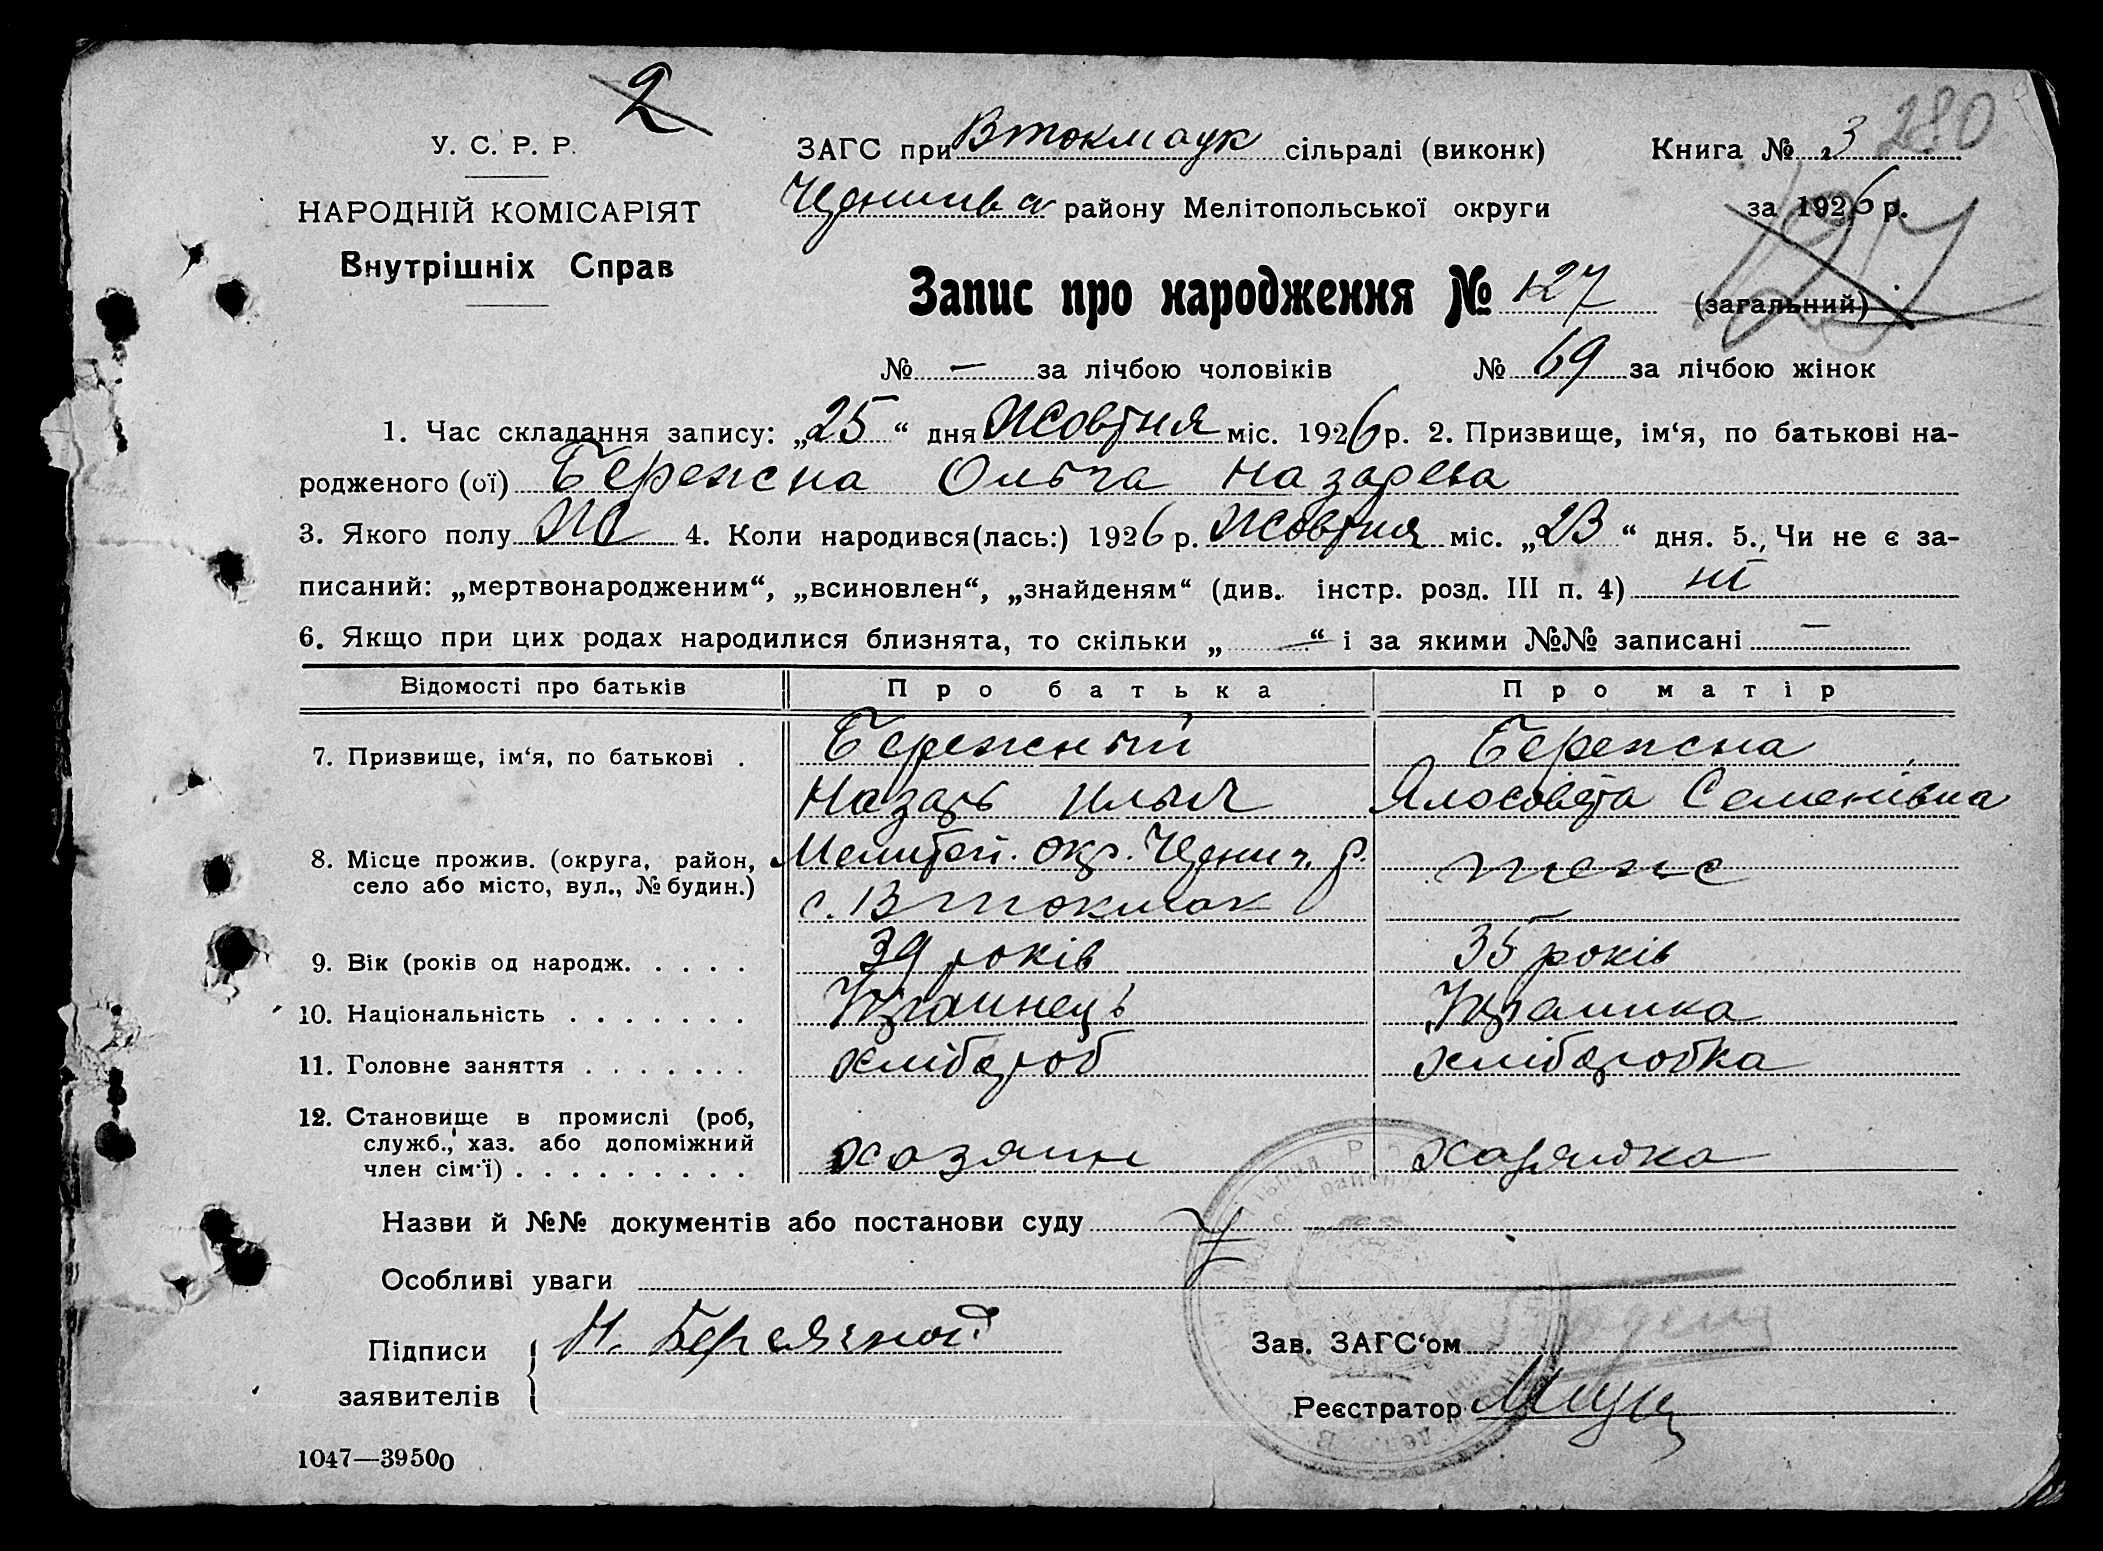 2
280
У. С. Р. Р.
ЗАГС при Втокмаук сільраді (виконк)
Книга № 3
НАРОДНІЙ КОМІСАРІЯТ
району Мелітопольської округи
за 1926 р.
Внутрішніх Справ
127
Запис про народження № 127 (загальний)
№ — за лічбою чоловіків № 69 за лічбою жінок
1. Час складання запису: „25“ дня Жовтня міс. 1926 р. 2. Призвище, ім‘я, по батькові на-
родженого (ої) Бережна Ольга Назарева
3. Якого полу Ж 4. Коли народився(лась:) 1926 р. Жовтня міс. „23“ дня. 5., Чи не є за-
писаний: „мертвонародженим“, „всиновлен“, „знайденям“ (див. інстр. розд. III п. 4) ні
6. Якщо при цих родах народилися близнята, то скільки „ — “ і за якими №№ записані —
Відомості про батьків Про батька Про матір
7. Призвище, ім‘я, по батькові . Бережный Бережна
Назарь Ильич Ялосовета Семенівна
8. Місце прожив. (округа, район, Мелитоп. окр. Черниг. р. теж
село або місто, вул., № будин.) с. В Токмак
9. Вік (років од народж. . . . . 39 років 35 років
10. Національність . . . . . . . Українець Українка
11. Головне заняття . . . . . . . хлібороб хліборобка
12. Становище в промислі (роб,
служб., хаз. або допоміжний хозяин хозяйка
член сім‘ї) . . . . . . . . .
Назви й №№ документів або постанови суду
Особливі уваги
Підписи Н. Бережной
заявителів
Зав. ЗАГС‘ом
Реєстратор
1047—39500